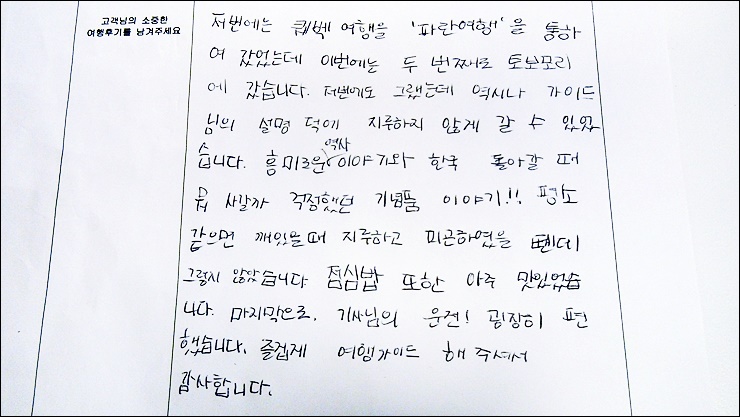 고객님의 소중한
여행후기를 남겨주세요
저번에는 퀘벡 여행을 '파란여행'을 통하
여 갔었는데 이번에는 두 번째로 토보모리
에 갔습니다. 저번에도 그랬는데 역시나 가이드
님의 설명 덕에 지루하지 않게 갈 수 있었
습니다. 흥미로운 역사 이야기와 한국 돌아갈 때
뭐 사갈까 걱정했던 기념품 이야기!! 평소
같으면 깨있을때 지루하고 피곤하였을 뻔데
그렇지 않았습니다 점심밥 또한 아주 맛있었습
니다. 마지막으로, 기사님의 운전! 굉장히 편
했습니다. 즐겁게 여행가이드 해 주셔서
감사합니다.